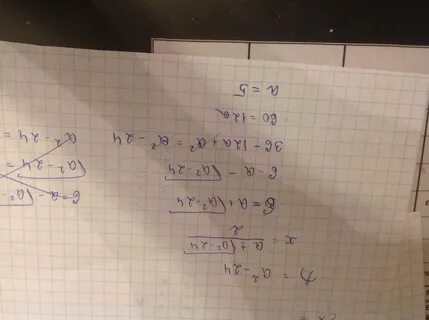 D = a² - 24
x = (a ± √(a² - 24)) / 2
6 = a + √(a² - 24)
6 - a = √(a² - 24)
36 - 12a + a² = a² - 24
60 = 12a
a = 5
6 = a - √(a² - 2
√(a² - 24) =
a² - 24 =